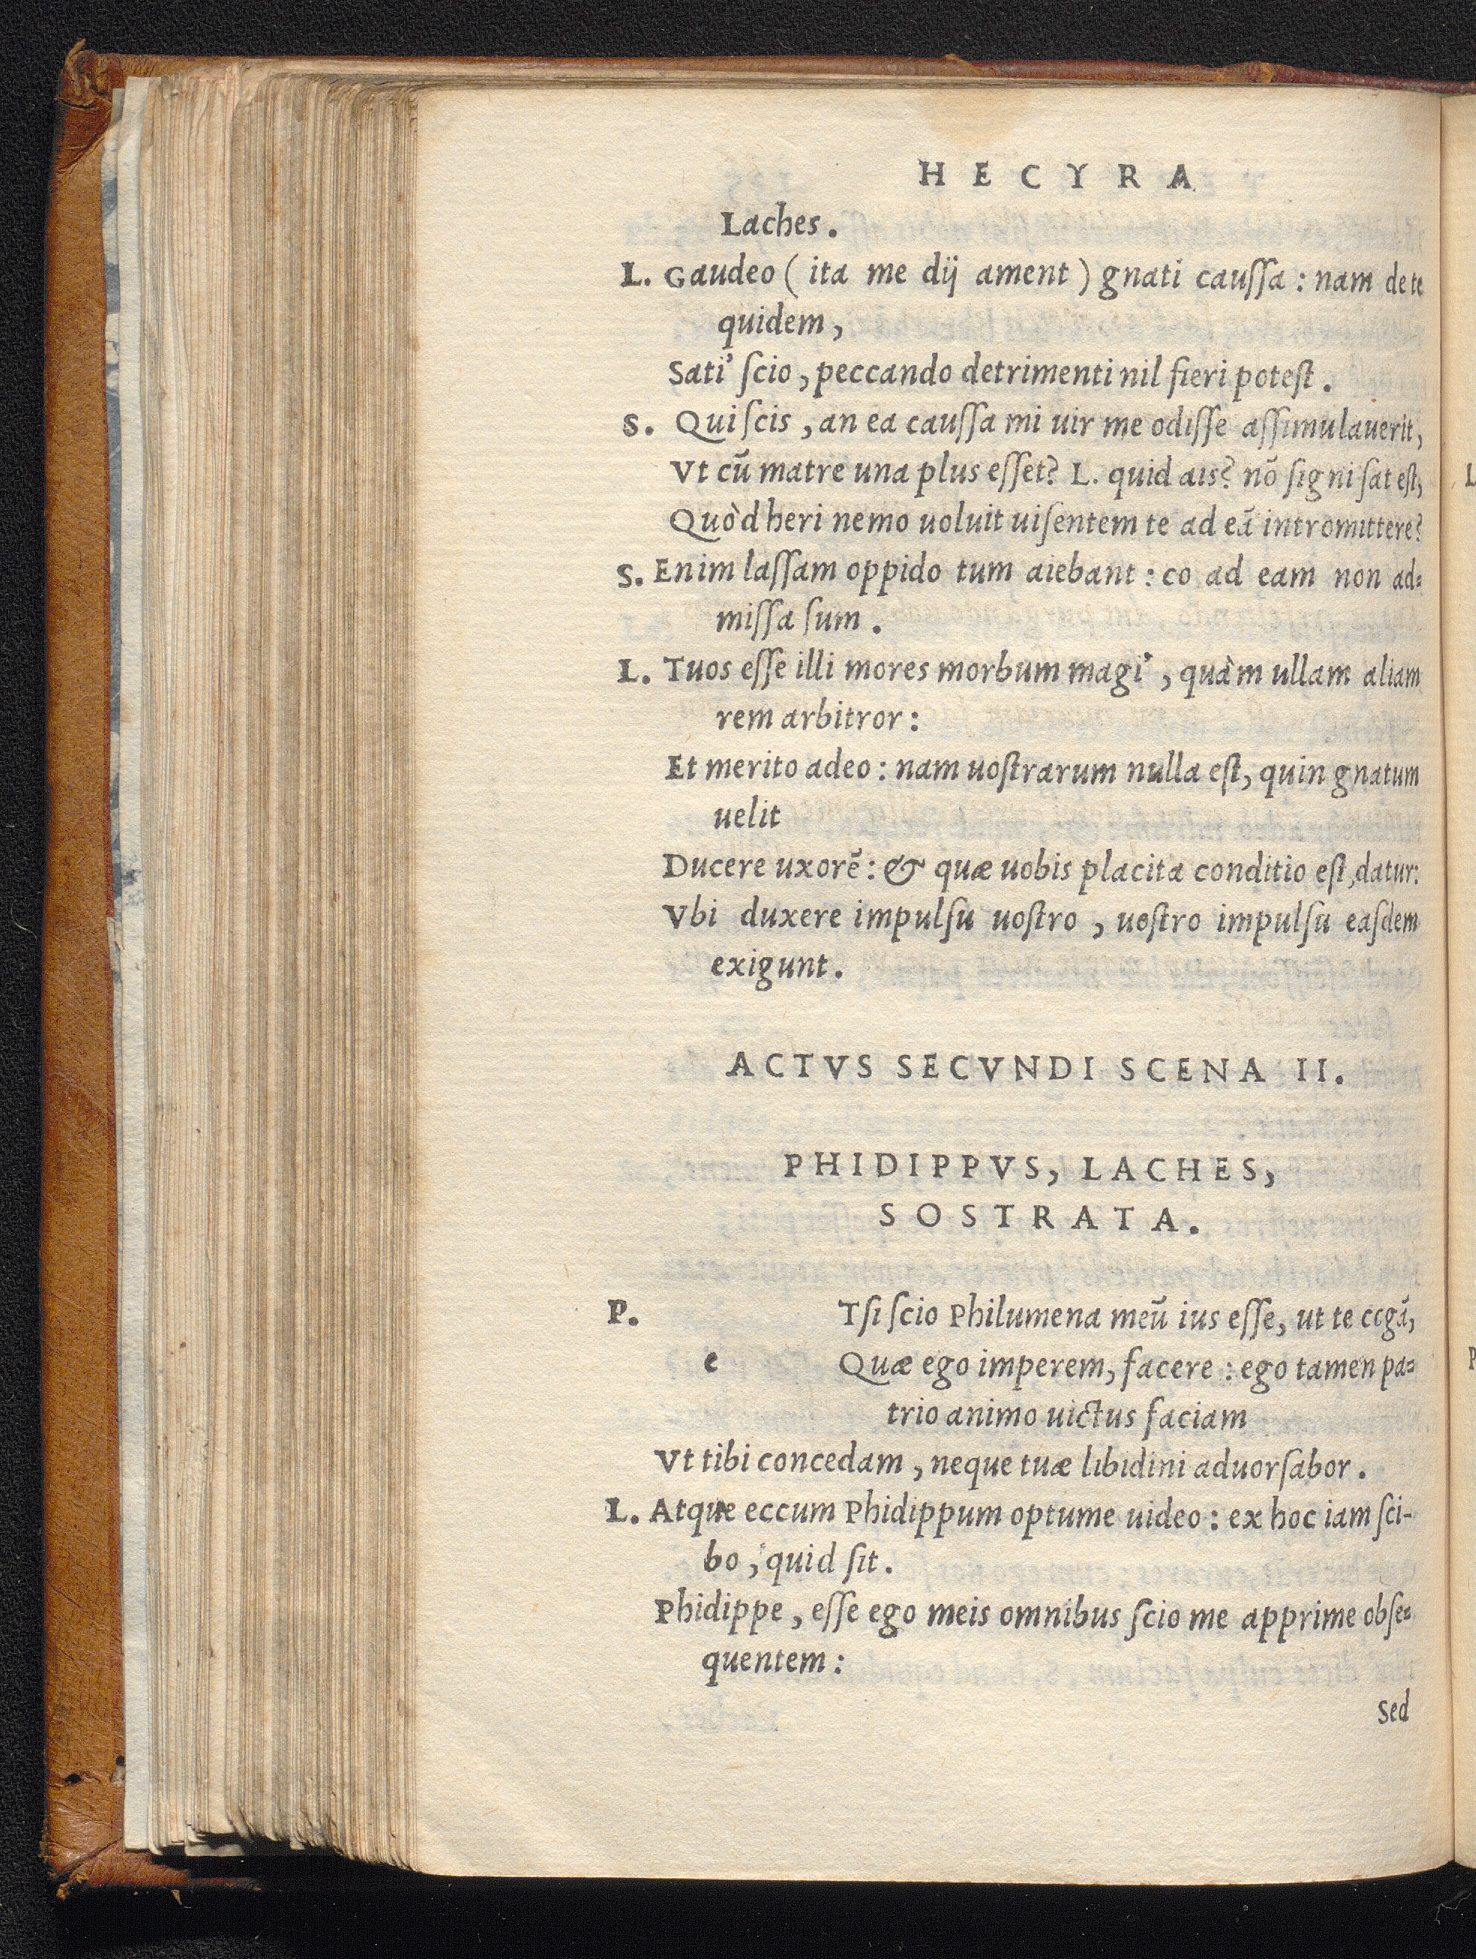 HECYRA
Laches.
L. Gaudeo (ita me dij ament) gnati cauſſa: nam de te
quidem,
Sati' ſcio, peccando detrimenti nil fieri poteſt.
S. Qui ſcis, an ea cauſſa mi uir me odiſſe aſſimulauerit,
Vt cū matre una plus eſſet? L. quid ais? nō ſigni ſat eſt,
Quòd heri nemo uoluit uiſentem te ad eā intromittere?
S. Enim laſſam oppido tum aiebant: eo ad eam non ad-
miſſa ſum.
L. Tuos eſſe illi mores morbum magi', quàm ullam aliam
rem arbitror:
Et merito adeo: nam uoſtrarum nulla eſt, quin gnatum
uelit
Ducere uxorē: & quæ uobis placita conditio eſt, datur:
Vbi duxere impulſu uoſtro, uoſtro impulſu eaſdem
exigunt.
ACTVS SECVNDI SCENA II.
PHIDIPPVS, LACHES,
SOSTRATA.
P. Tſi ſcio Philumena meū ius eſſe, ut te cogā,
e Quæ ego imperem, facere: ego tamen pa-
trio animo uictus faciam
Vt tibi concedam, neque tuæ libidini aduorſabor.
L. Atque eccum Phidippum optume uideo: ex hoc iam ſci-
bo, quid ſit.
Phidippe, eſſe ego meis omnibus ſcio me apprime obſe-
quentem:
Sed